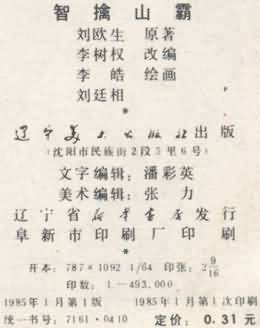 智擒山霸
刘欧生 原著
李树权 改编
李皓 绘画
刘廷相
*
辽宁美术出版社出版
(沈阳市民族街2段5里6号)
文字编辑：潘彩英
美术编辑：张力
辽宁省新华书店发行
阜新市印刷厂印刷
*
开本：787×1092 1/64 印张：2 9/16
印数：1—493,000
1985年1月第1版 1985年1月第1次印刷
统一书号：7161·0410 定价：0.31元